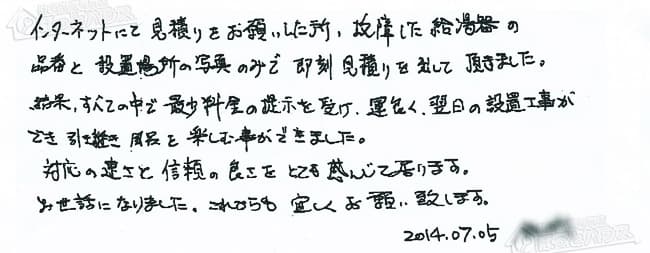 インターネットにて見積りをお願いした所、故障した給湯器の
品番と設置場所の写真のみで即刻見積りを出して頂きました。
結果、すべての中で最少料金の提示を受け、運良く、翌日の設置工事が
でき引き続き風呂を楽しむ事ができました。
対応の速さと信頼の良さをとても感じて居ります。
お世話になりました。これからも宜しくお願い致します。
2014.07.05